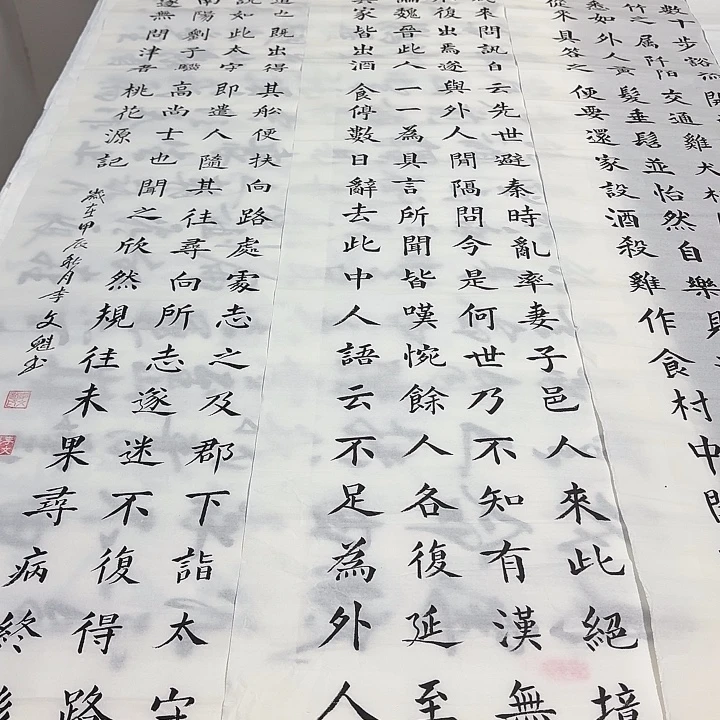 數十步豁
竹之屬阡陌交通雞犬
悉如外人黃髮垂髫並怡然自樂見
從來具答之便要還家設酒殺雞作食村中聞
來問訊自云先世避秦時亂率妻子邑人來此絕境
復出焉遂與外人間隔問今是何世乃不知有漢無
論魏晉此人一一為具言所聞皆嘆惋餘人各復延至
其家皆出酒食停數日辭去此中人語云不足為外人
道也既出得其船便扶向路處處志之及郡下詣太守
說如此太守即遣人隨其往尋向所志遂迷不復得路
南陽劉子驥高尚士也聞之欣然規往未果尋病終後
遂無問津者 桃花源記
歲在甲辰秋月李文魁书